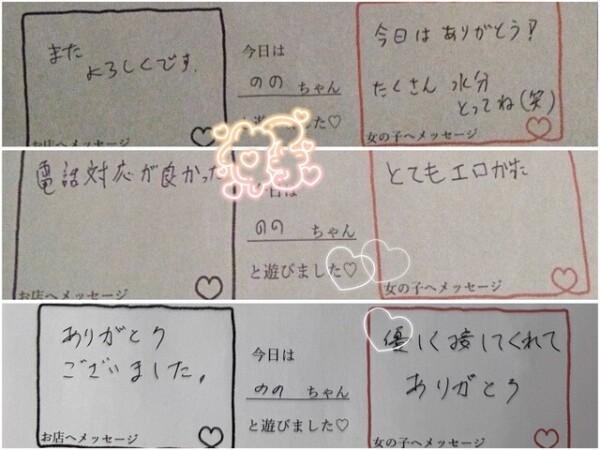 また
よろしくです.
お店へメッセージ
今日は
のの ちゃん
と遊びました♡
今日は ありがとう!
たくさん 水分
とってね(笑)
女の子へメッセージ
電話対応が良かった
お店へメッセージ
今日は
のの ちゃん
と遊びました♡
とてもエロかた
女の子へメッセージ
ありがとう
ございました。
お店へメッセージ
今日は
のの ちゃん
と遊びました♡
優しく接してくれて
ありがとう
女の子へメッセージ